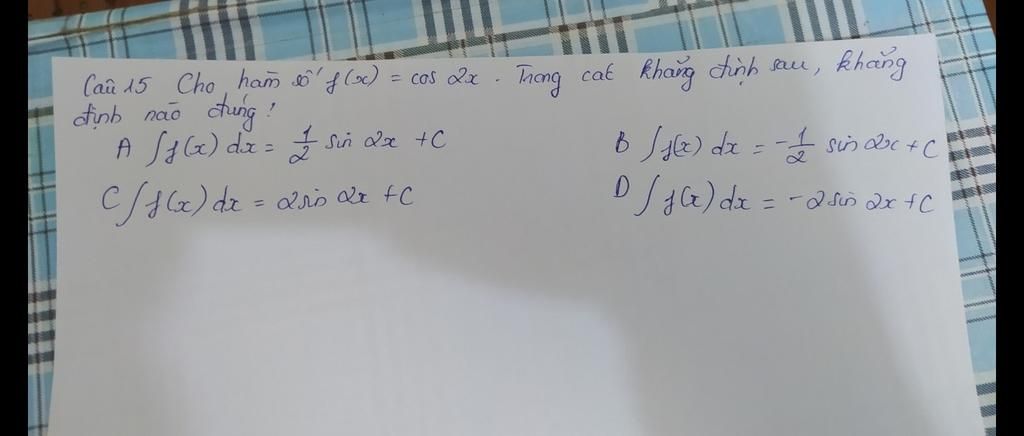 Câu 15 Cho hàm số f(x) = cos 2x. Trong các khẳng định sau, khẳng
định nào đúng?
A ∫f(x) dx = 1/2 sin 2x + C B ∫f(x) dx = -1/2 sin 2x + C
C ∫f(x) dx = 2sin 2x + C D ∫f(x) dx = -2 sin 2x + C